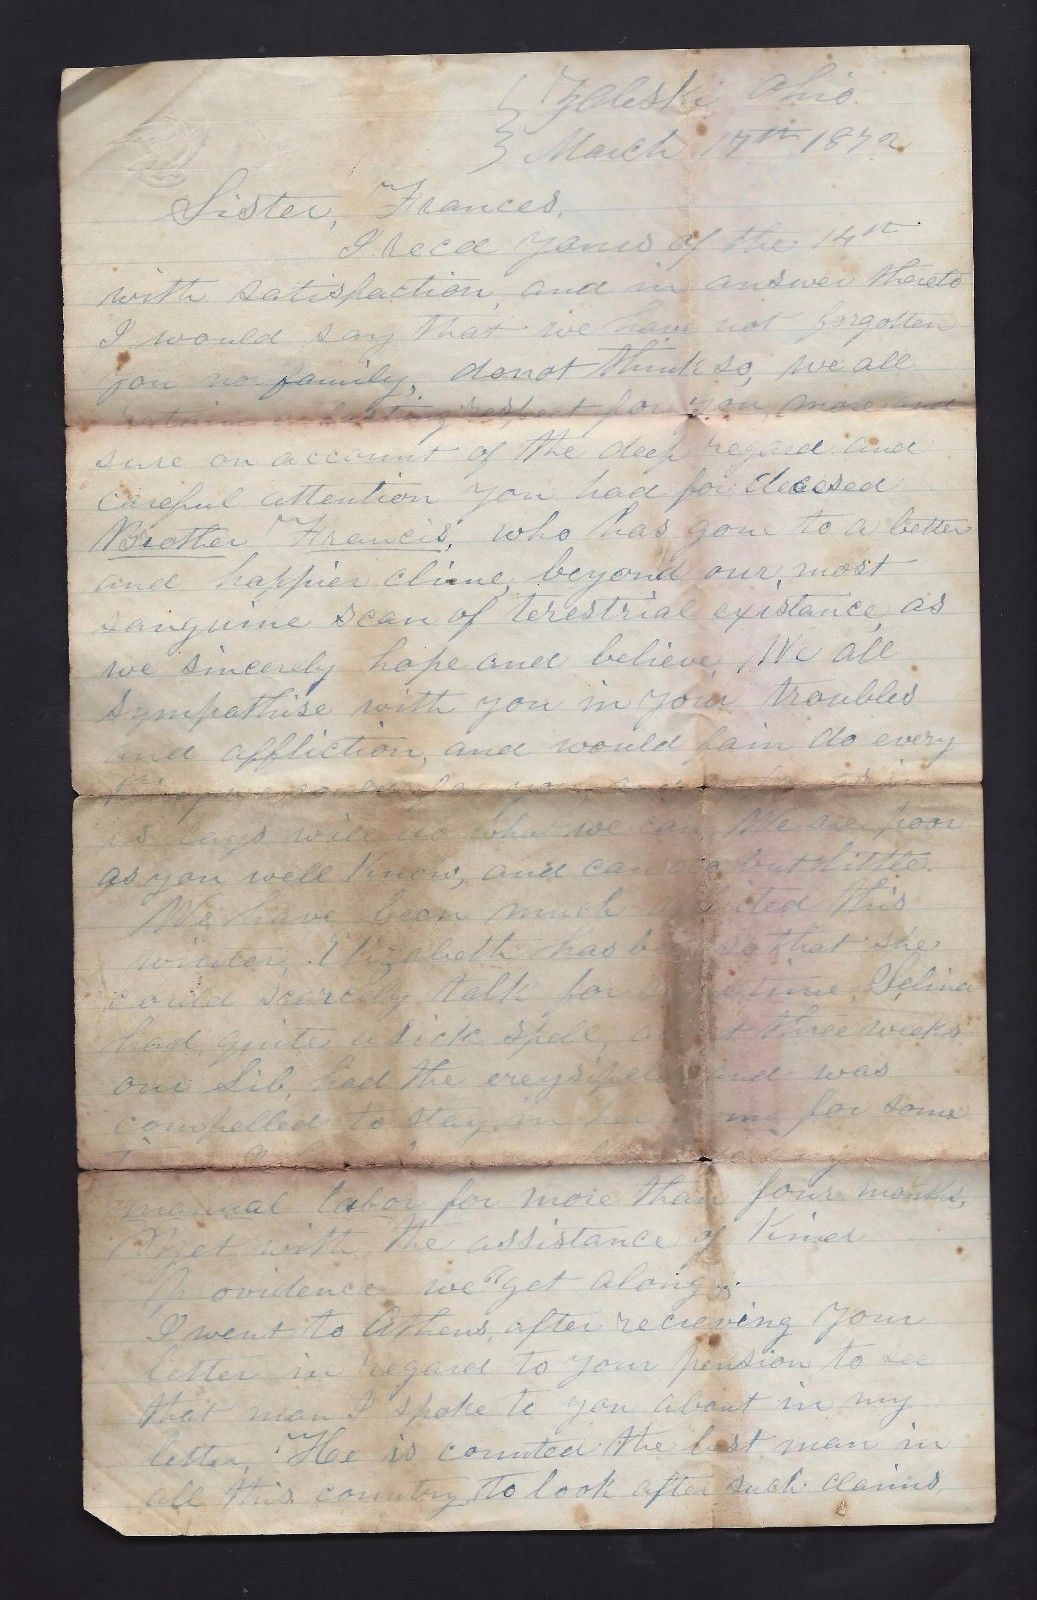 Zaleski Ohio.
March 17th 1872
Sister, Frances,
I recd yours of the 14th
with satisfaction, and in answer thereto
I would say that we have not forgotten
you nor family, do not think so, we all
retain a lasting respect for you, more and
sure on account of the deep regard and
careful attention you had for deceased
Brother Francis, who has gone to a better
and happier clime, beyond our, most
sanguine scan of terestrial existance, as
we sincerely hope and believe, We all
sympathise with you in your troubles
and affliction, and would fain do every
us says will do what we can, We are poor
as you well know, and can do but little.
We have been much afflicted this
winter, Elizabeth has been so that she
could scarcely talk for some time, Selina
had quite a sick spell, about three weeks
our Lib, had the ereysipelas and was
compelled to stay in her for some
manual labor for more than four months,
yet with the assistance of kind
Providence we get along.
I went to Athens, after recieving your
letter in regard to your pension, to see
that man I spoke to you about in my
letter, He is counted the best man in
all this country, to look after such claims,